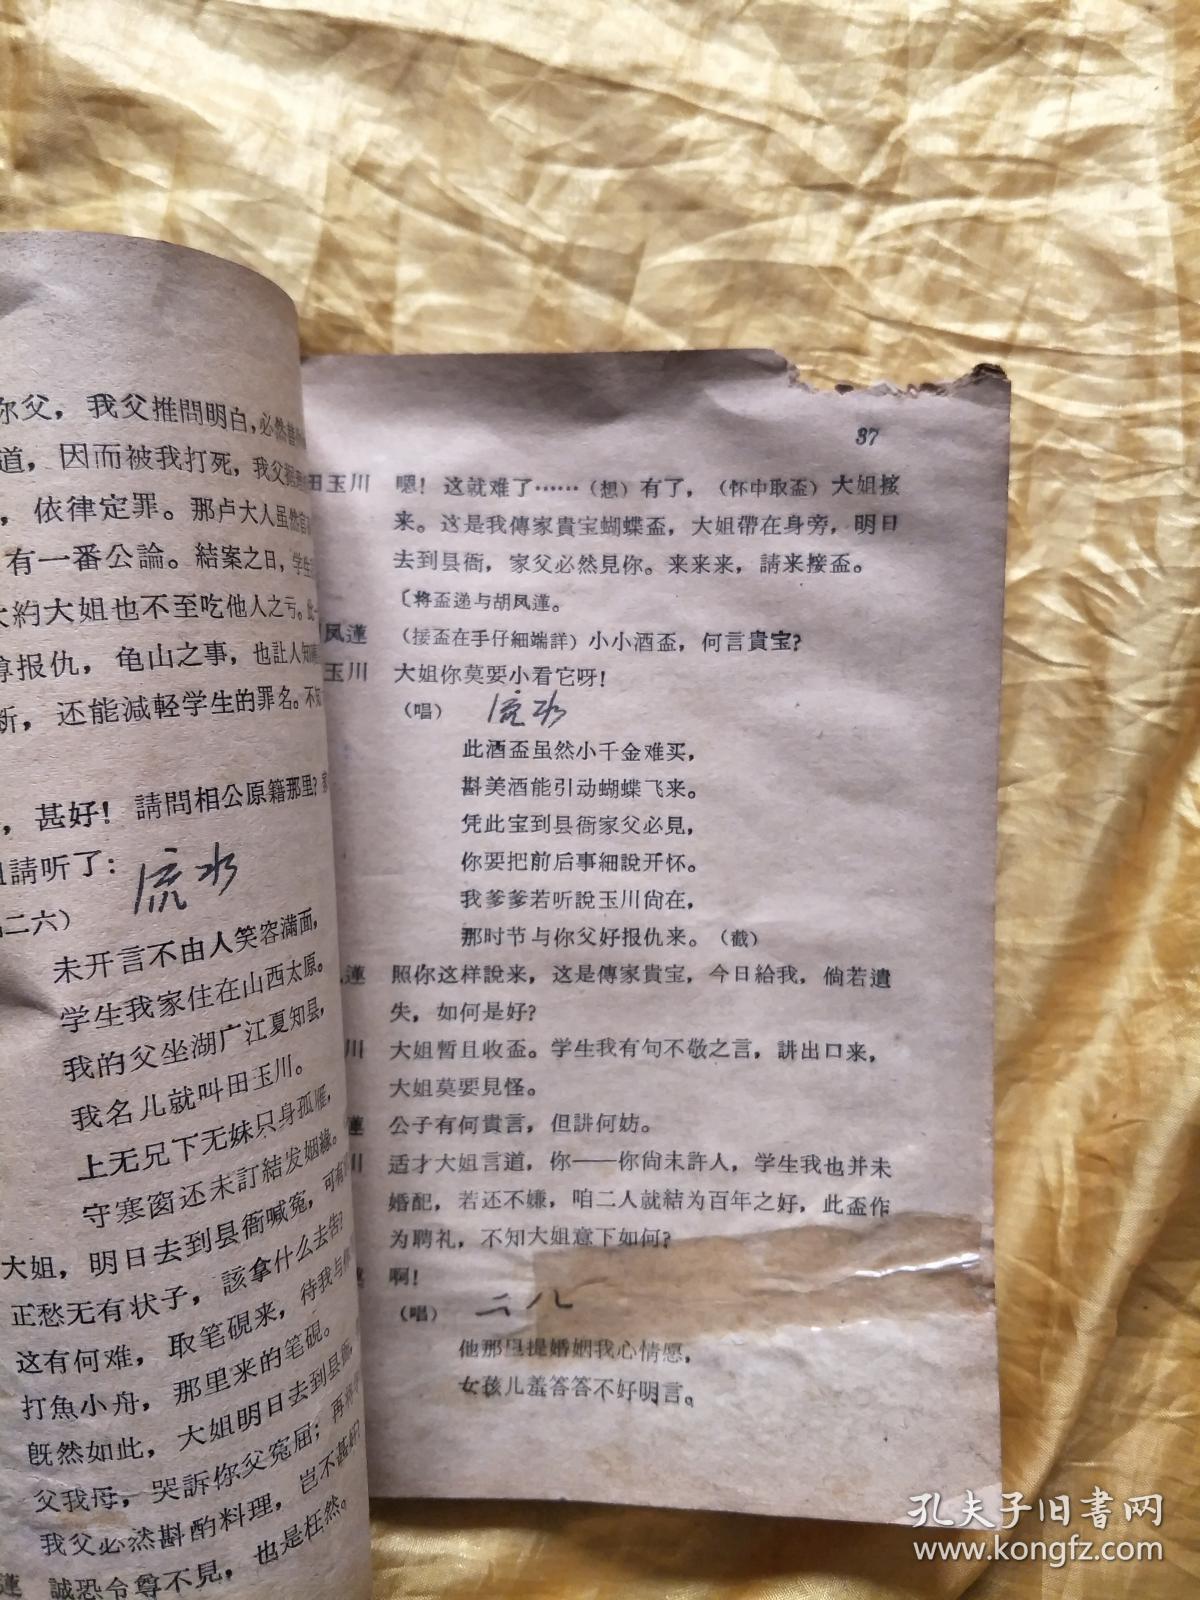 尔父，我父推問明白，必然
道，因而被我打死，我父
，依律定罪。那卢大人虽然官
有一番公論。結案之日，学生
大約大姐也不至吃他人之亏。此
报仇，龟山之事，也让人知
新，还能減輕学生的罪名。不知
，甚好！請問相公原籍那里？家
請听了：流水
二六）
未开言不由人笑容滿面，
学生我家住在山西太原。
我的父坐湖广江夏知县，
我名儿就叫田玉川。
上无兄下无妹只身孤雁，
守寒窗还未訂結发姻緣。
大姐，明日去到县衙喊冤，可有
正愁无有状子，該拿什么去告？
这有何难，取笔硯来，待我与你
打魚小舟，那里来的笔硯。
既然如此，大姐明日去到县衙，
父我母，哭訴你父冤屈；再将
我父必然斟酌料理，岂不甚好？
蓮 誠恐令尊不見，也是枉然。
37
田玉川 嗯！这就难了……（想）有了，（怀中取盃）大姐接
来。这是我傳家貴宝蝴蝶盃，大姐帶在身旁，明日
去到县衙，家父必然見你。来来来，請来接盃。
〔将盃递与胡凤蓮。
凤蓮 （接盃在手仔細端詳）小小酒盃，何言貴宝？
玉川 大姐你莫要小看它呀！
（唱） 流水
此酒盃虽然小千金难买，
斟美酒能引动蝴蝶飞来。
凭此宝到县衙家父必見，
你要把前后事細說开怀。
我爹爹若听說玉川尙在，
那时节与你父好报仇来。（截）
蓮 照你这样說来，这是傳家貴宝，今日給我，倘若遺
失，如何是好？
川 大姐暫且收盃。学生我有句不敬之言，讲出口来，
大姐莫要見怪。
蓮 公子有何貴言，但讲何妨。
川 适才大姐言道，你——你尙未許人，学生我也并未
婚配，若还不嫌，咱二人就結为百年之好，此盃作
为聘礼，不知大姐意下如何？
蓮 啊！
（唱） 二八
他那里提婚姻我心情愿，
女孩儿羞答答不好明言。
孔夫子旧書网
www.kongfz.com